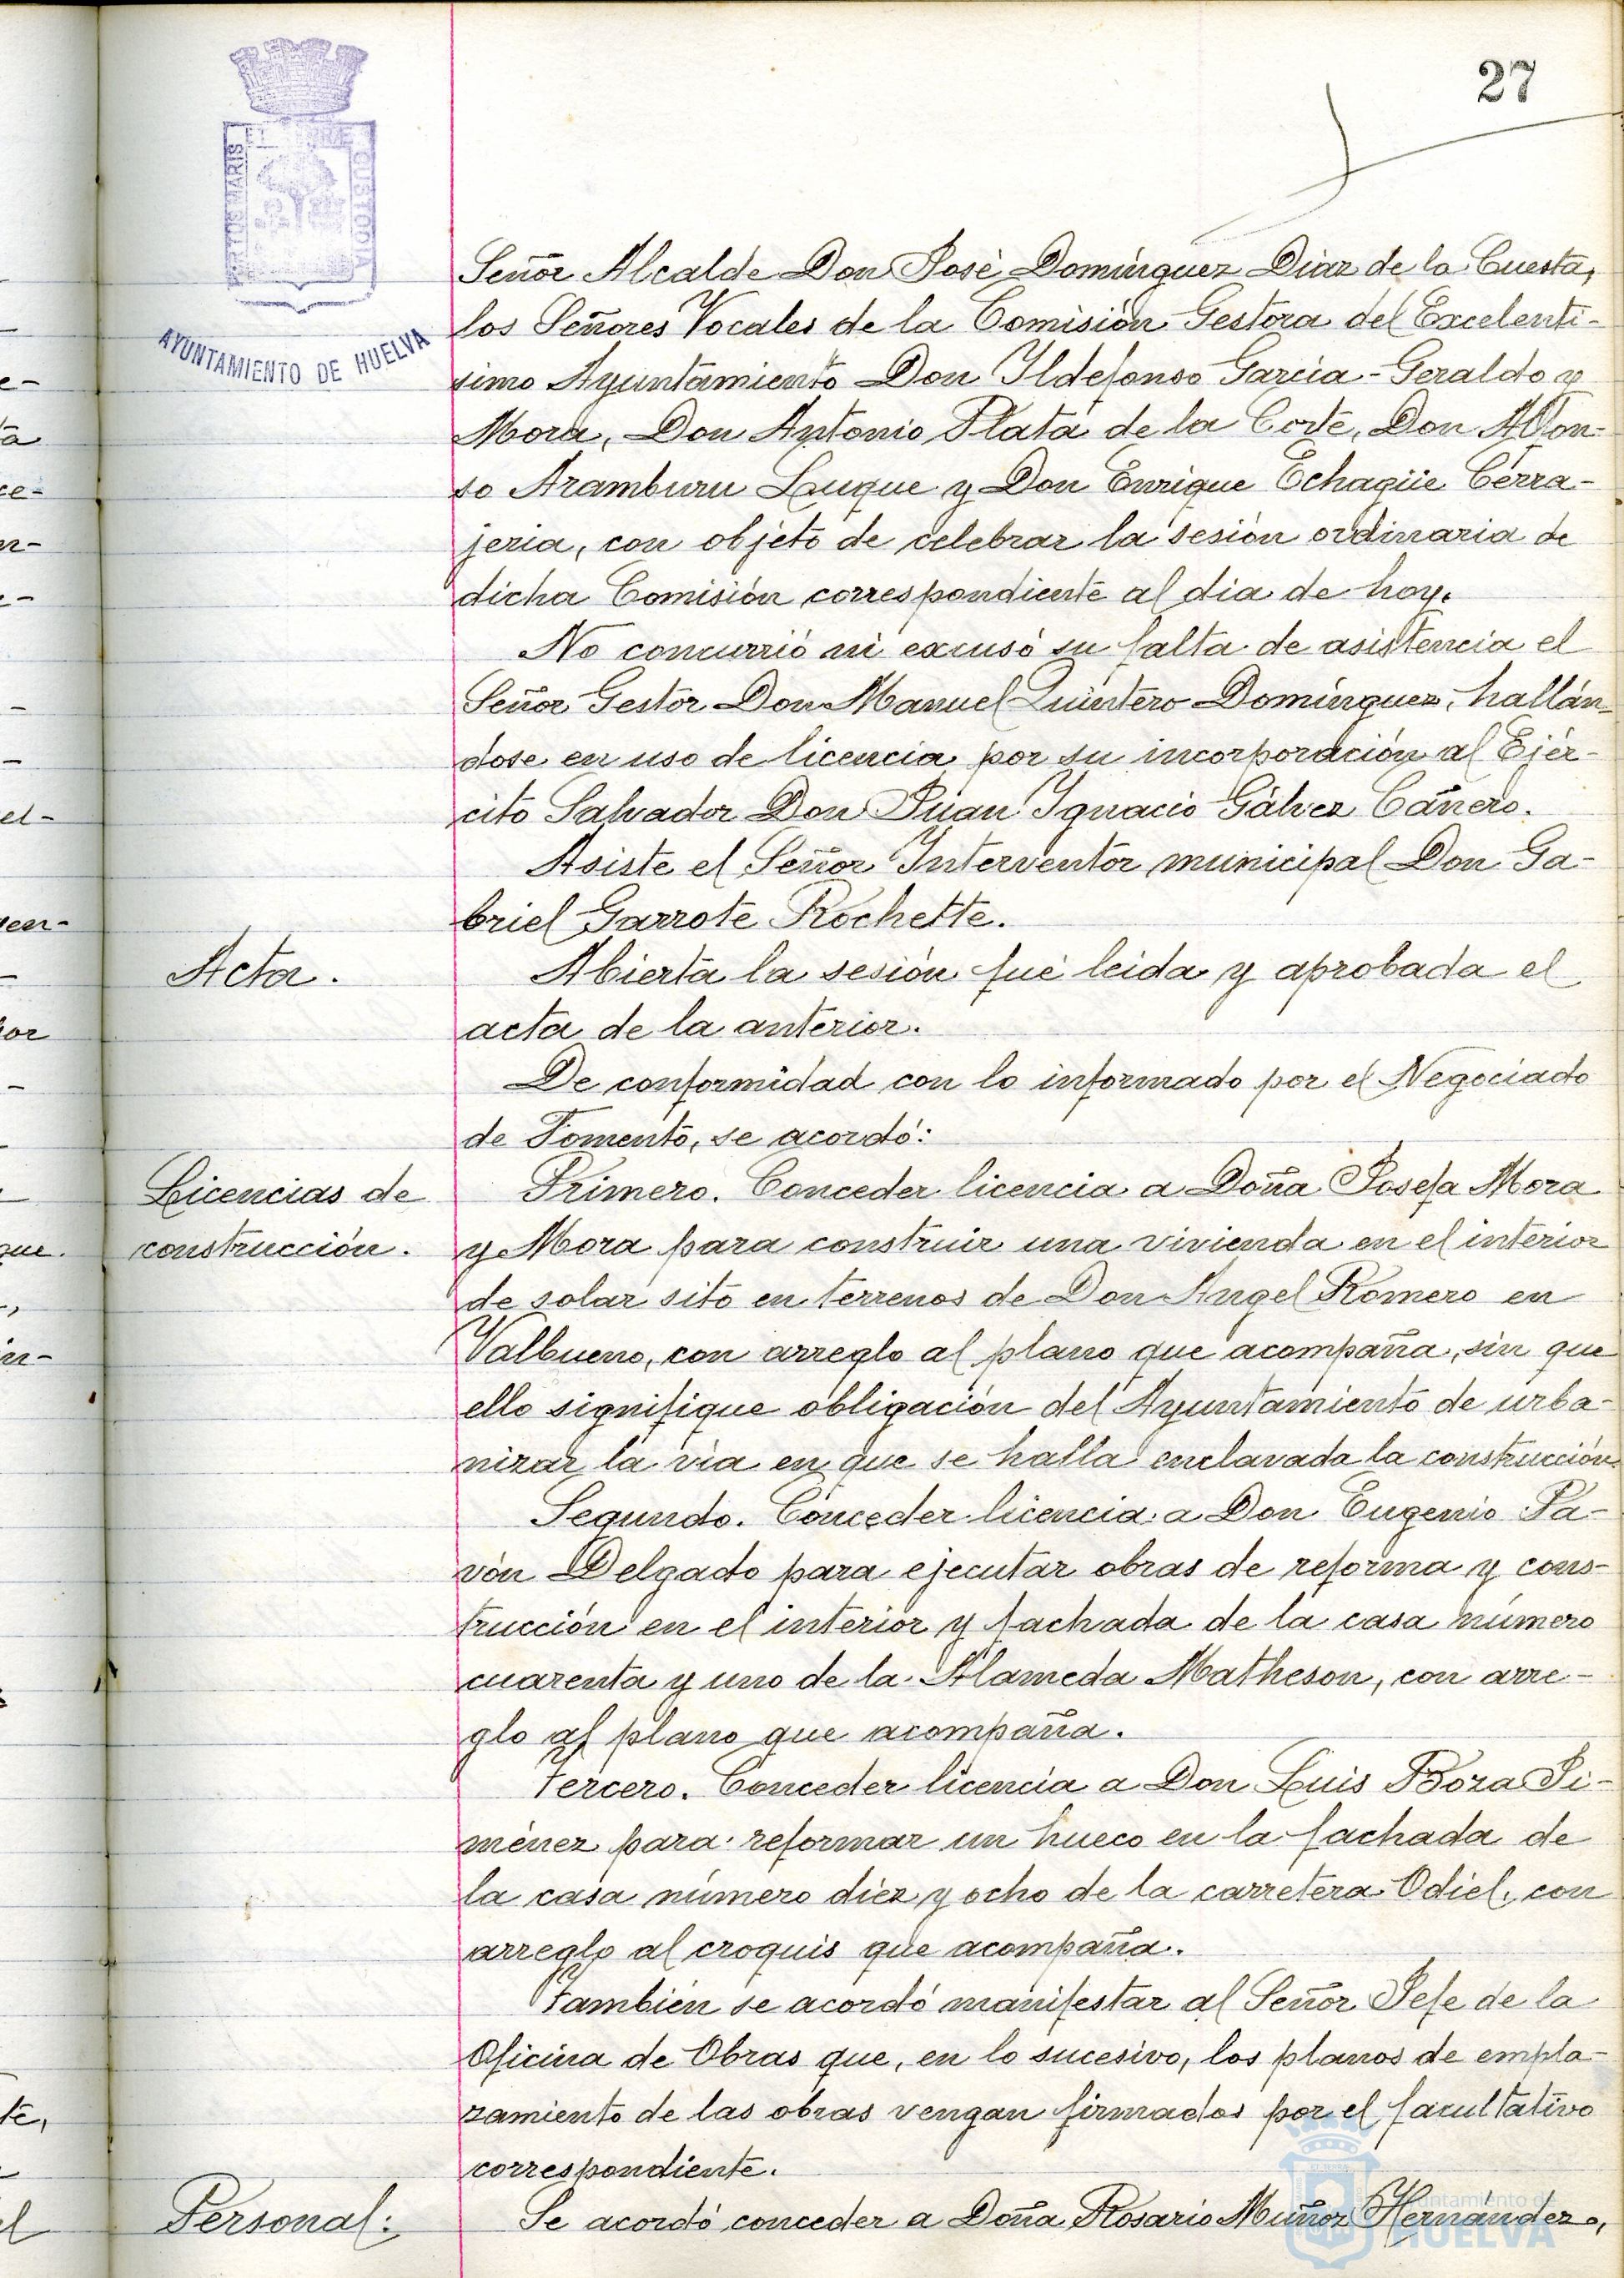 27
PORTUS MARIS ET TERRE CUSTODIA
AYUNTAMIENTO DE HUELVA
Señor Alcalde Don José Domínguez Diaz de la Cuesta,
los Señores Vocales de la Comisión Gestora del Excelentí-
simo Ayuntamiento Don Ildefonso García-Geraldo y
Mora, Don Antonio Plata de la Corte, Don Alfon-
so Aramburu Luque y Don Enrique Echagüe Cerra-
jeria, con objeto de celebrar la sesión ordinaria de
dicha Comisión correspondiente al dia de hoy.
No concurrió ni excusó su falta de asistencia el
Señor Gestor Don Manuel Quintero Domínguez, hallán-
dose en uso de licencia por su incorporación al Ejér-
cito Salvador Don Juan Ignacio Gálvez Cañero.
Asiste el Señor Interventor municipal Don Ga-
briel Garrote Rochette.
Acta.
Abierta la sesión fué leida y aprobada el
acta de la anterior.
De conformidad con lo informado por el Negociado
de Fomento, se acordó:
Licencias de
construcción.
Primero. Conceder licencia a Doña Josefa Mora
y Mora para construir una vivienda en el interior
de solar sito en terrenos de Don Angel Romero en
Valbueno, con arreglo al plano que acompaña, sin que
ello signifique obligación del Ayuntamiento de urba-
nizar la vía en que se halla enclavada la construcción.
Segundo. Conceder licencia a Don Eugenio Pa-
vón Delgado para ejecutar obras de reforma y cons-
trucción en el interior y fachada de la casa número
cuarenta y uno de la Alameda Matheson, con arre-
glo al plano que acompaña.
Tercero. Conceder licencia a Don Luis Boza Ji-
ménez para reformar un hueco en la fachada de
la casa número diez y ocho de la carretera Odiel, con
arreglo al croquis que acompaña.
También se acordó manifestar al Señor Jefe de la
Oficina de Obras que, en lo sucesivo, los planos de empla-
zamiento de las obras vengan firmados por el facultativo
correspondiente.
Personal:
Se acordó conceder a Doña Rosario Muñoz Hernández,
Ayuntamiento de
HUELVA